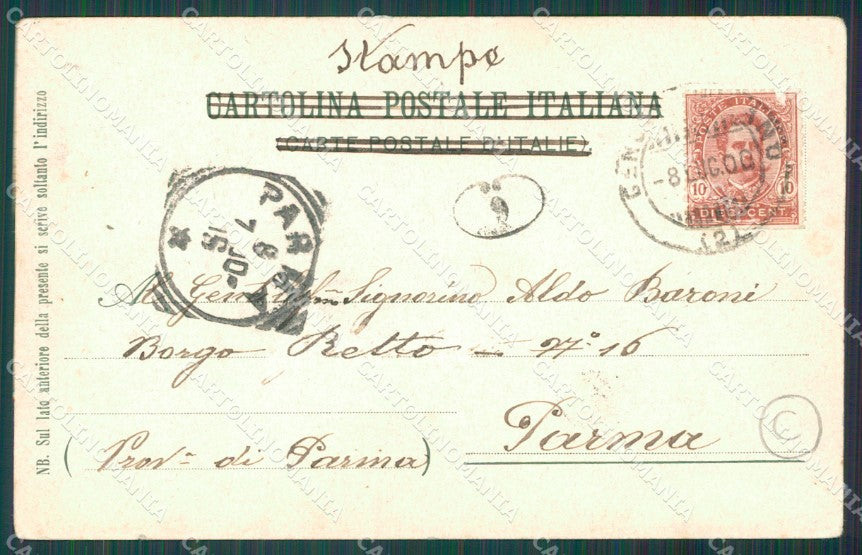 Stampe
CARTOLINA POSTALE ITALIANA
(CARTE POSTALE D'ITALIE)
POSTE ITALIANE
10 10
DIECI CENT.
-8 LUG.00
(2)
PARMA
8 7
00
15
6
Al Gentilmo Signorino Aldo Baroni
Borgo Retto — No 16
Parma
(Prova di Parma)
NB. Sul lato anteriore della presente si scrive soltanto l'indirizzo
C
CARTOLINOMANIA